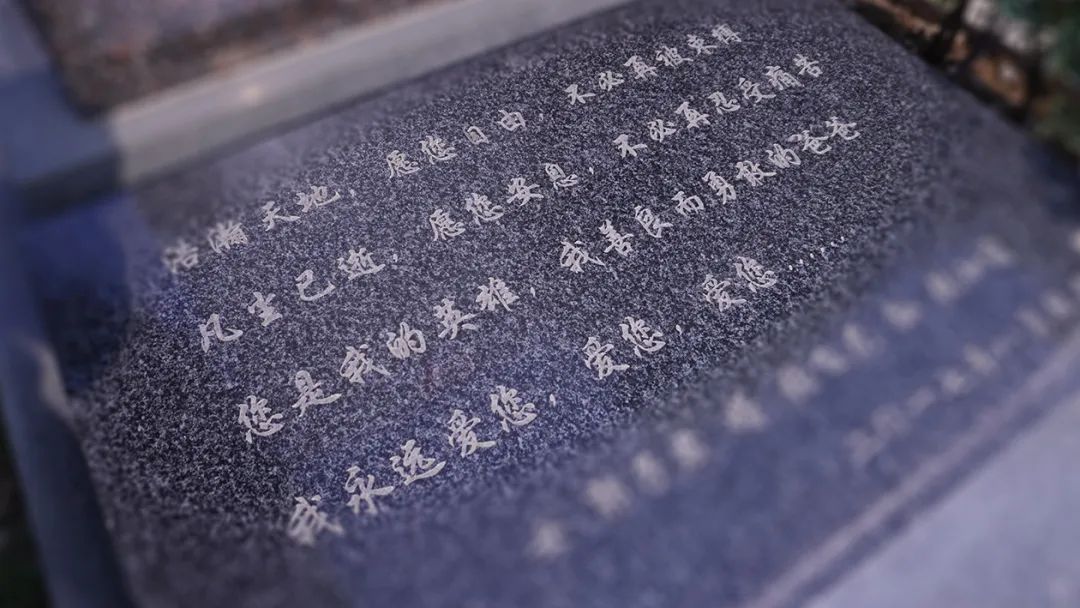 浩瀚天地，愿您自由，不必再被束缚
凡尘已逝，愿您安息，不必再忍受痛苦
您是我的英雄，我善良而勇敢的爸爸
我永远爱您，爱您，爱您……